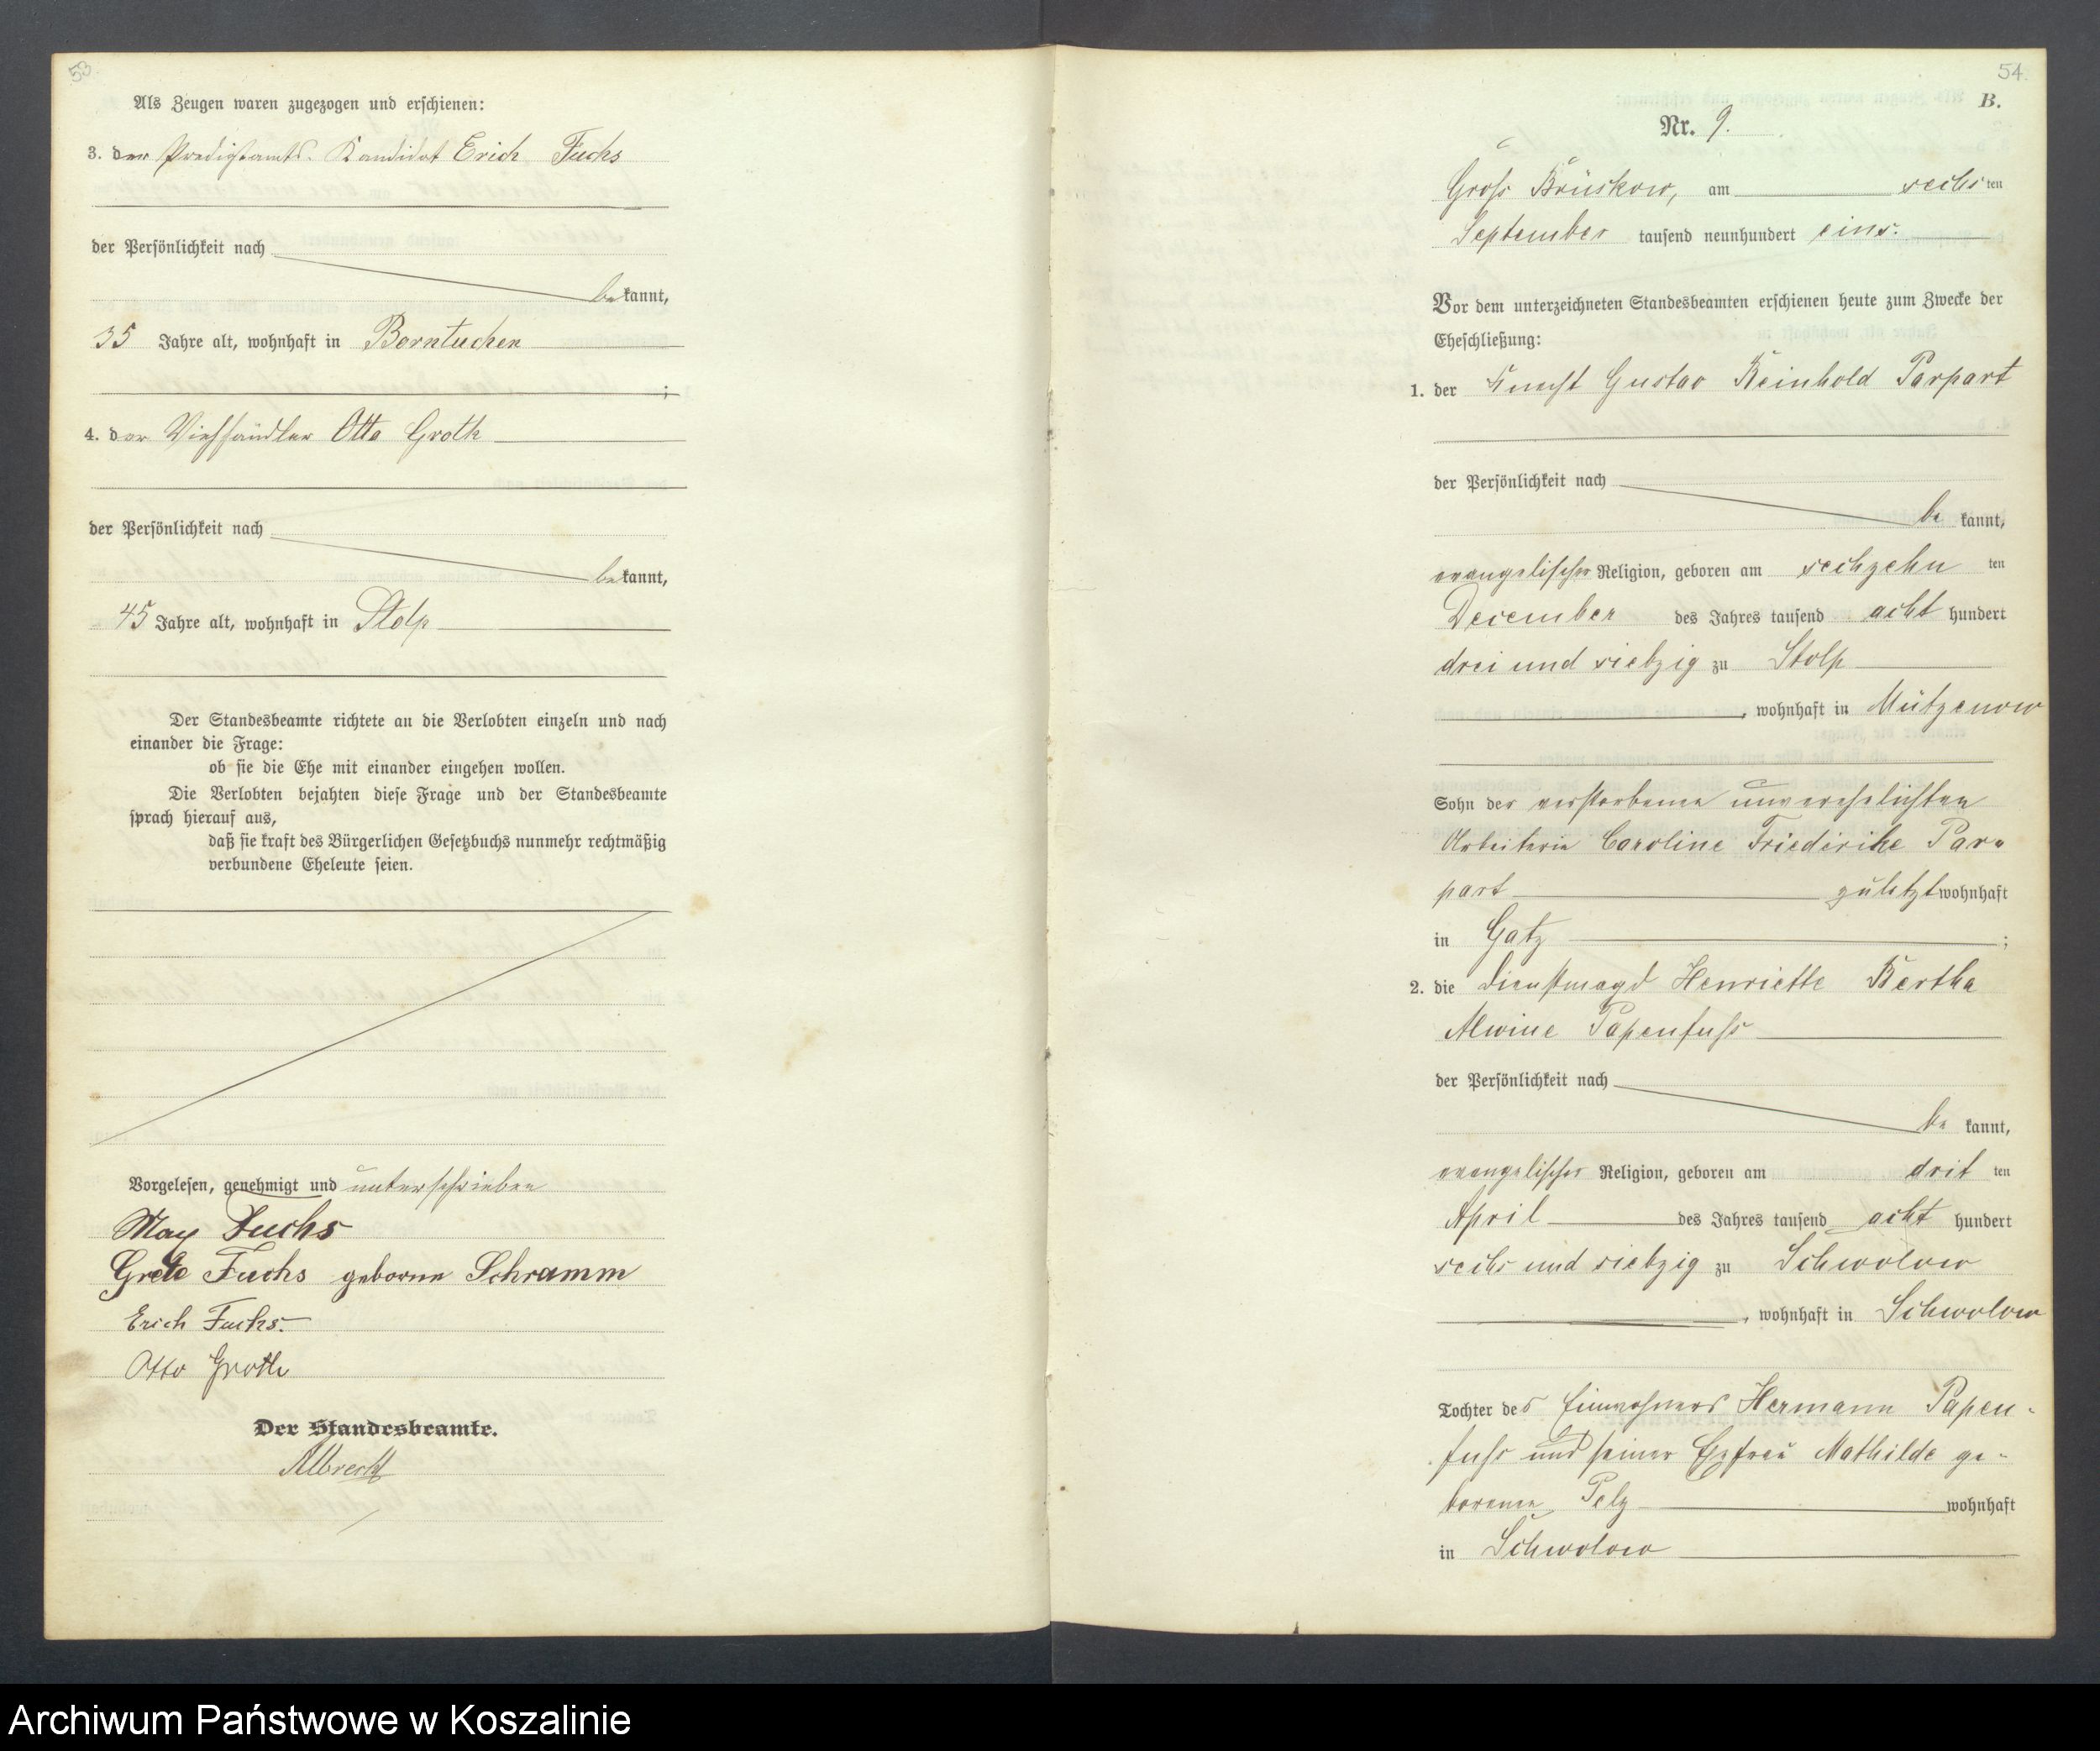 53.
Als Zeugen waren zugezogen und erschienen:
3. der Predigtamts-Kandidat Erich Fuchs
der Persönlichkeit nach
bekannt,
35 Jahre alt, wohnhaft in Borntuchen
;
4. der Viehhändler Otto Groth
der Persönlichkeit nach
bekannt,
45 Jahre alt, wohnhaft in Stolp
Der Standesbeamte richtete an die Verlobten einzeln und nach
einander die Frage:
ob sie die Ehe mit einander eingehen wollen.
Die Verlobten bejahten diese Frage und der Standesbeamte
sprach hierauf aus,
daß sie kraft des Bürgerlichen Gesetzbuchs nunmehr rechtmäßig
verbundene Eheleute seien.
Vorgelesen, genehmigt und unterschrieben
Max Fuchs
Grete Fuchs geborne Schramm
Erich Fuchs.
Otto Groth
Der Standesbeamte.
Albrecht
54.
B.
Nr. 9.
Groß Brüskow, am sechsten
September tausend neunhundert eins.
Vor dem unterzeichneten Standesbeamten erschienen heute zum Zwecke der
Eheschließung:
1. der Knecht Gustav Reinhold Parpart
der Persönlichkeit nach
be kannt,
evangelischer Religion, geboren am sechzehn ten
December des Jahres tausend acht hundert
drei und siebzig zu Stolp
, wohnhaft in Mützenow
Sohn der verstorbenen unverehelichten
Arbeiterin Caroline Friederike Par-
part zuletzt wohnhaft
in Gatz ;
2. die Dienstmagd Henriette Bertha
Alwine Papenfuß
der Persönlichkeit nach
be kannt,
evangelischer Religion, geboren am drit ten
April des Jahres tausend acht hundert
sechs und siebzig zu Schwolow
, wohnhaft in Schwolow
Tochter des Einwohners Hermann Papen-
fuß und seiner Ehefrau Mathilde ge-
borenen Pelz wohnhaft
in Schwolow
Archiwum Państwowe w Koszalinie